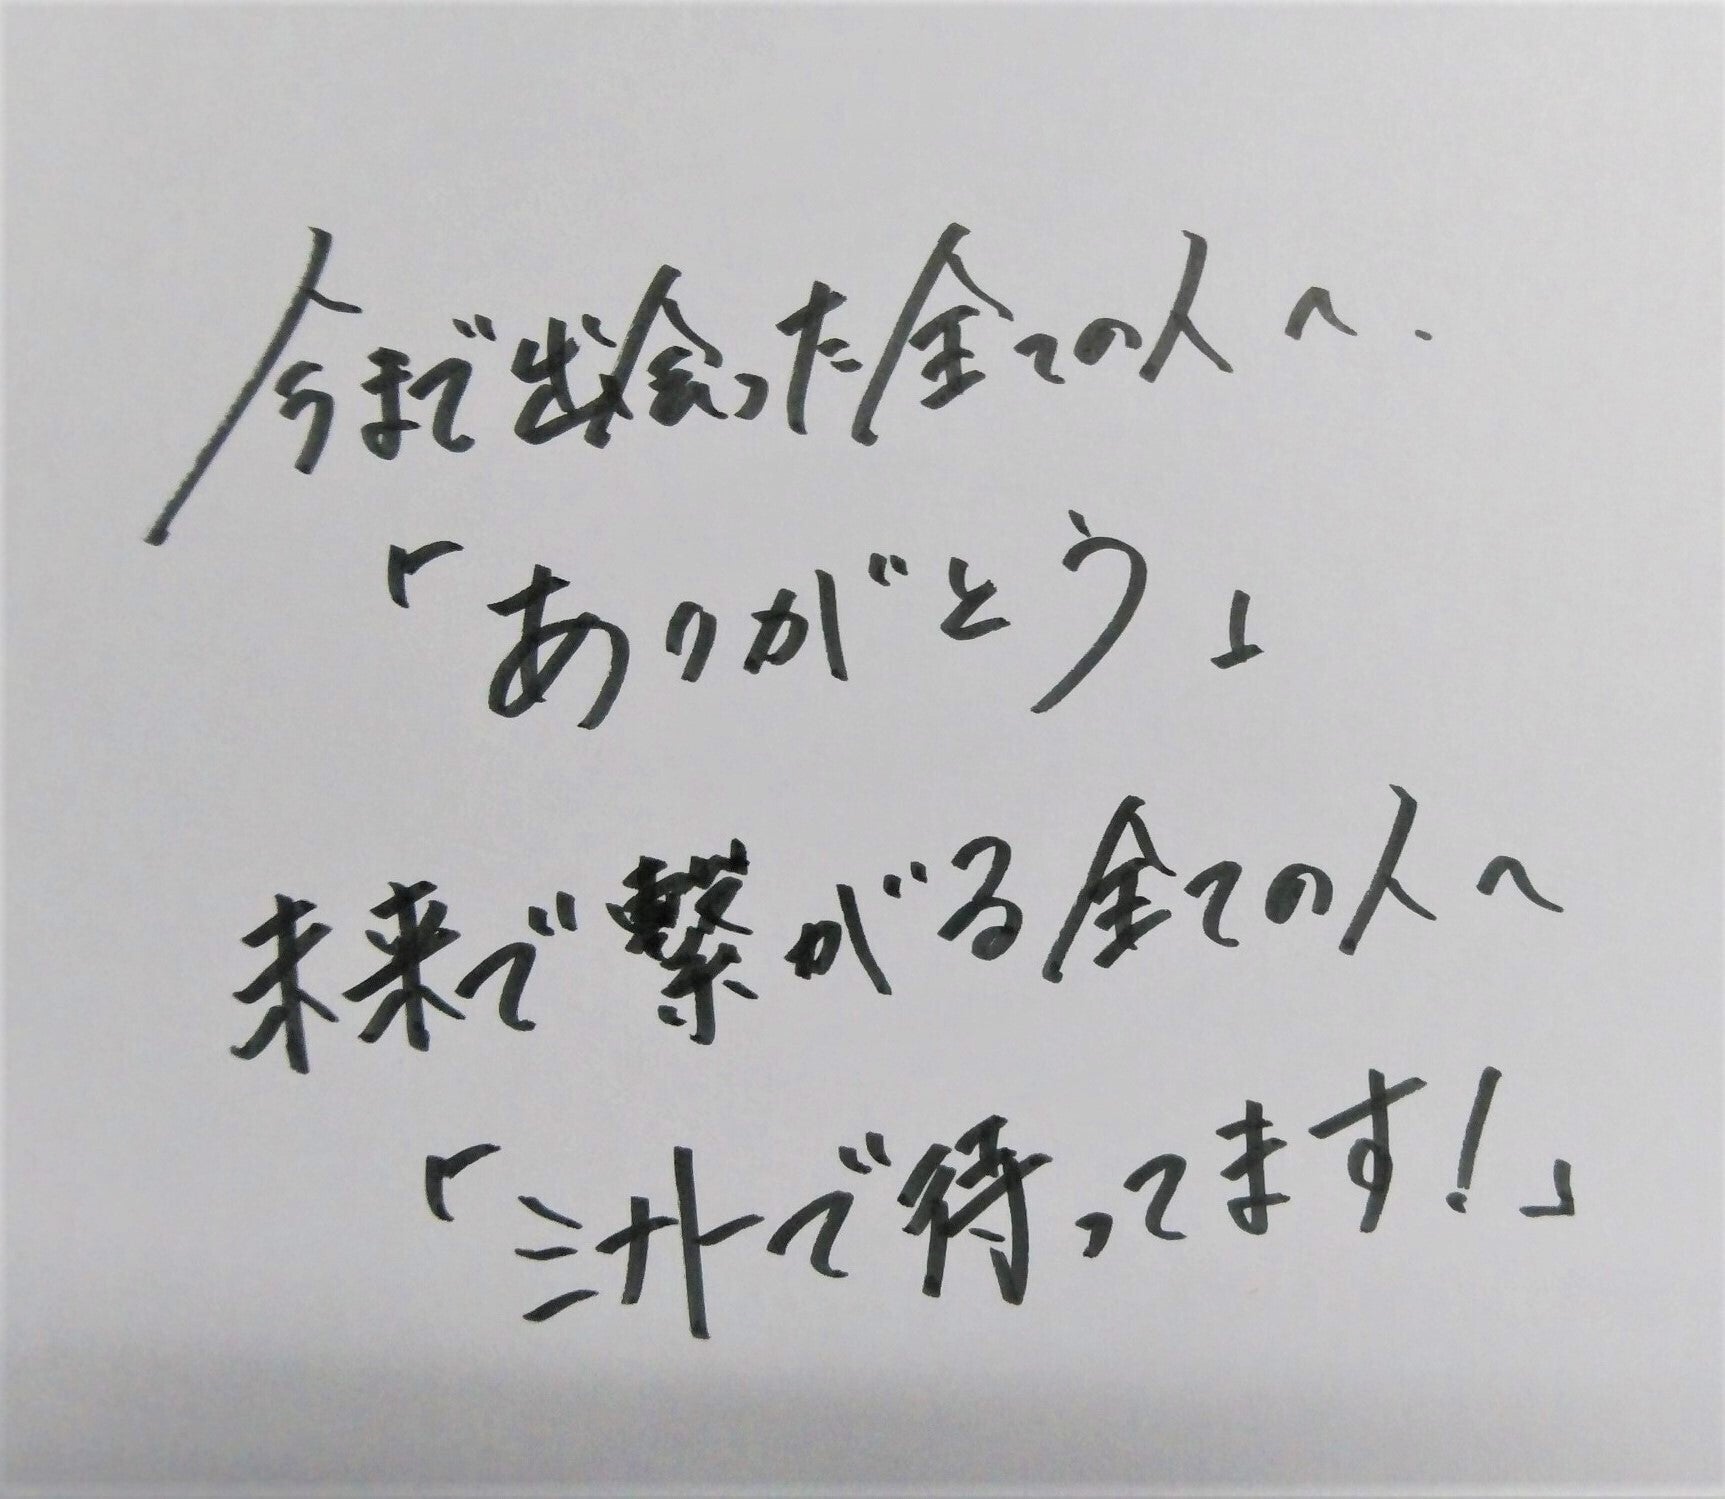 今まで出会った全ての人へ.
「ありがとう」
未来で繋がる全ての人へ
「ミナトで待ってます!」